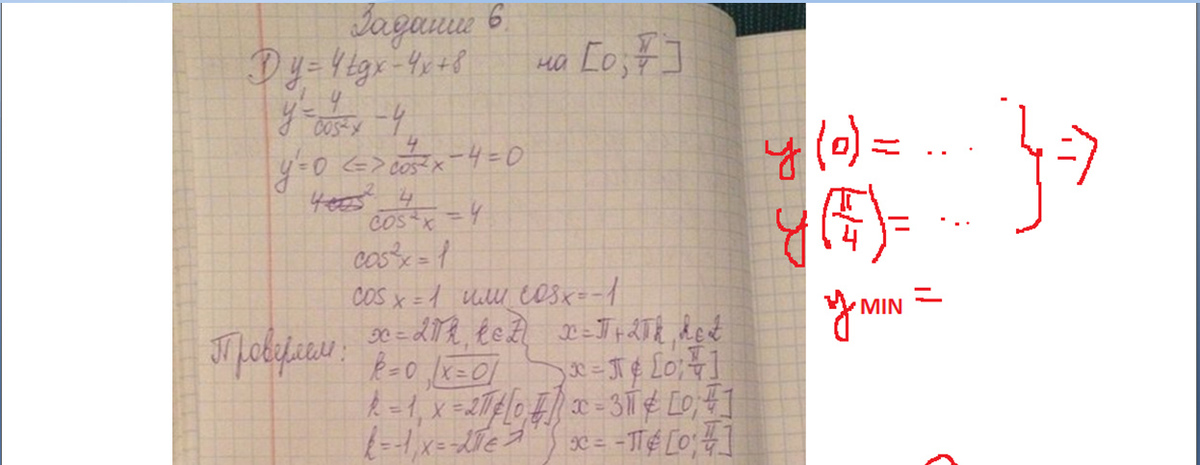 Задание 6.
1) y = 4tgx - 4x + 8 на [0; π/4]
y' = 4/cos²x - 4
y' = 0 <=> 4/cos²x - 4 = 0
4/cos²x = 4
cos²x = 1
cos x = 1 или cos x = -1
Проверяем: x = 2πk, k∈Z x = π + 2πk, k∈Z
k = 0, x = 0 x = π ∉ [0; π/4]
k = 1, x = 2π ∉ [0; π/4] x = 3π ∉ [0; π/4]
k = -1, x = -2π x = -π ∉ [0; π/4]
y(0) = ...
y(π/4) = ...
} =>
y MIN =